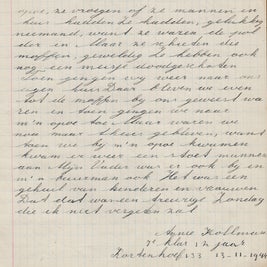 opoe, ze vroegen of ze mannen in
huis hadden ze hadden, gelukkig
niemand, want ze waren de pol
der in. Maar ze schieten die
moffen geweldig ze hebben ook
nog een meisje doodgeschoten
Toen gingen wij weer naar ons
eigen huis daar bleven we even
tot de moffen bij ons geweest wa
ren en toen gingen we naar
m'n opoe toe. Maar waren we
nou maar thuis gebleven, want
toen we bij m'n opoe kwamen
kwam er weer een stoet mannen
aan Mijn Vader was er ook bij en
m'n buurman ook Het was een
gehuil van kinderen en vrouwen
Dat dat was een treurige Zondag
die ik niet vergeten zal
Annie Hollman
7e klas 12 jaar
133 13-11-1944